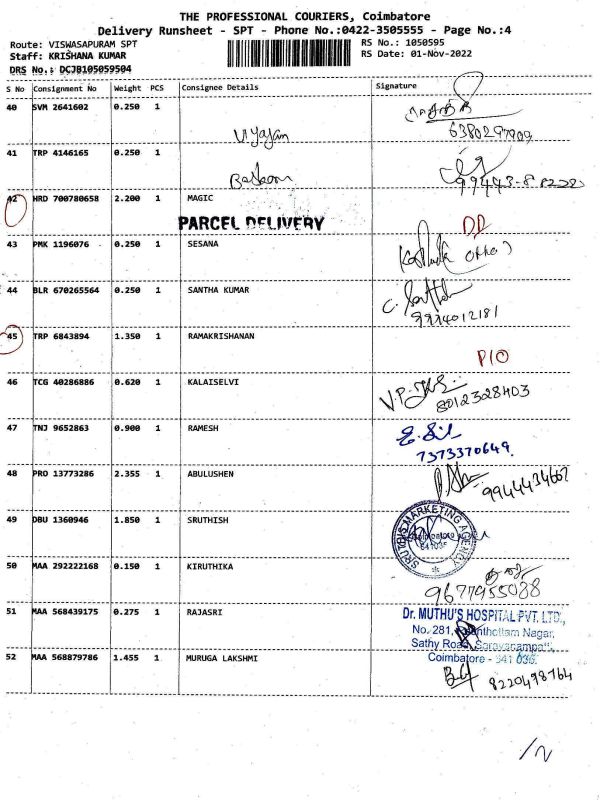 THE PROFESSIONAL COURIERS, Coimbatore
Delivery Runsheet - SPT - Phone No.:0422-3505555 - Page No.:4
Route: VISWASAPURAM SPT RS No.: 1050595
Staff: KRISHANA KUMAR RS Date: 01-Nov-2022
DRS No.: DCJB105059504
S No Consignment No Weight PCS Consignee Details Signature
40 SVM 2641602 0.250 1
Vijayan 6380297909
41 TRP 4146165 0.250 1
Baskaran
42 HRD 700780658 2.200 1 MAGIC
PARCEL DELIVERY DD
43 PMK 1196076 0.250 1 SESANA
44 BLR 670265564 0.250 1 SANTHA KUMAR
9994012181
45 TRP 6843894 1.350 1 RAMAKRISHANAN
P/O
46 TCG 40286886 0.620 1 KALAISELVI
8012328403
47 TNJ 9652863 0.900 1 RAMESH
7373370649
48 PRO 13773286 2.355 1 ABULUSHEN
9944434667
49 DBU 1360946 1.850 1 SRUTHISH
SRUTHIS MARKETING AGENCY
Coimbatore
641035
50 MAA 292222168 0.150 1 KIRUTHIKA
9677955088
51 MAA 568439175 0.275 1 RAJASRI
Dr. MUTHU'S HOSPITAL PVT. LTD.,
No. 281, Nagar,
Sathy Road, Saravanampatti,
Coimbatore - 641 035.
52 MAA 568879786 1.455 1 MURUGA LAKSHMI
8220498764